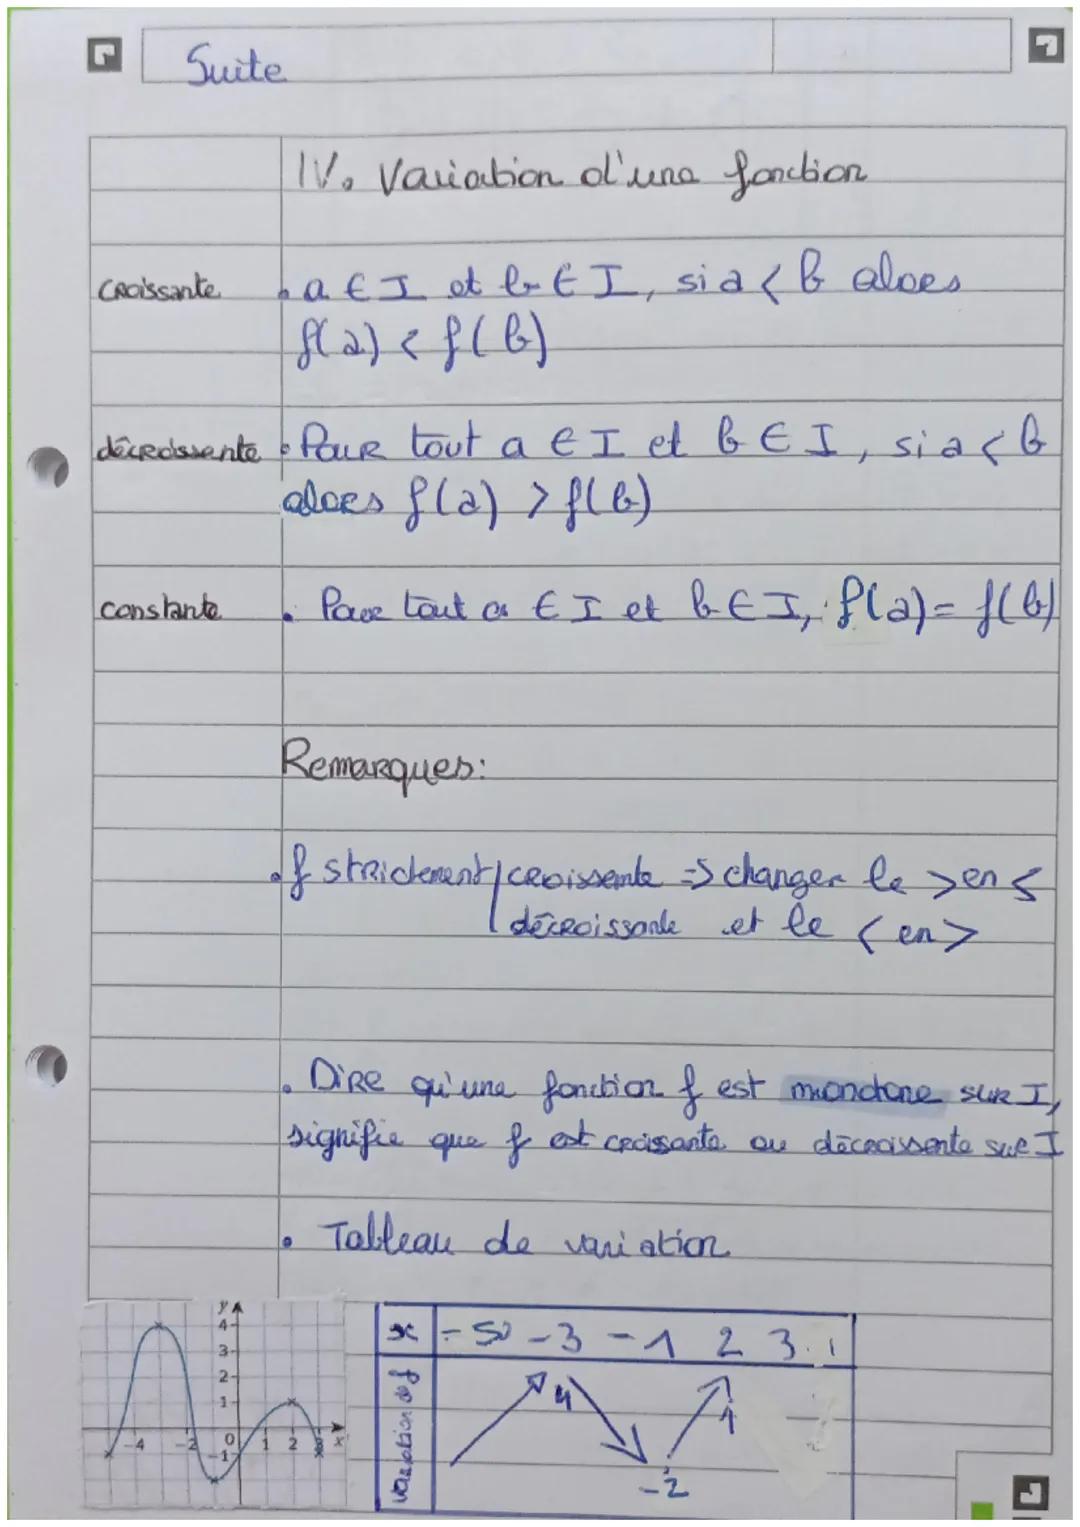 Suite
IV. Variation d'une fonction
croissante . a ∈ I et b ∈ I, si a < b alors
f(a) < f(b)
décroissante . Pour tout a ∈ I et b ∈ I, si a < b
alors f(a) > f(b)
constante . Pour tout a ∈ I et b ∈ I, f(a) = f(b)
Remarques:
. f strictement croissante => changer le > en ≤
décroissante et le < en >
. Dire qu'une fonction f est monotone sur I,
signifie que f est croissante ou décroissante sur I
. Tableau de variation
y
4
3
2
1
-4 -2 0 1 2 3 x
-1
x -3 -1 2 3
variation de f
4
1
-2